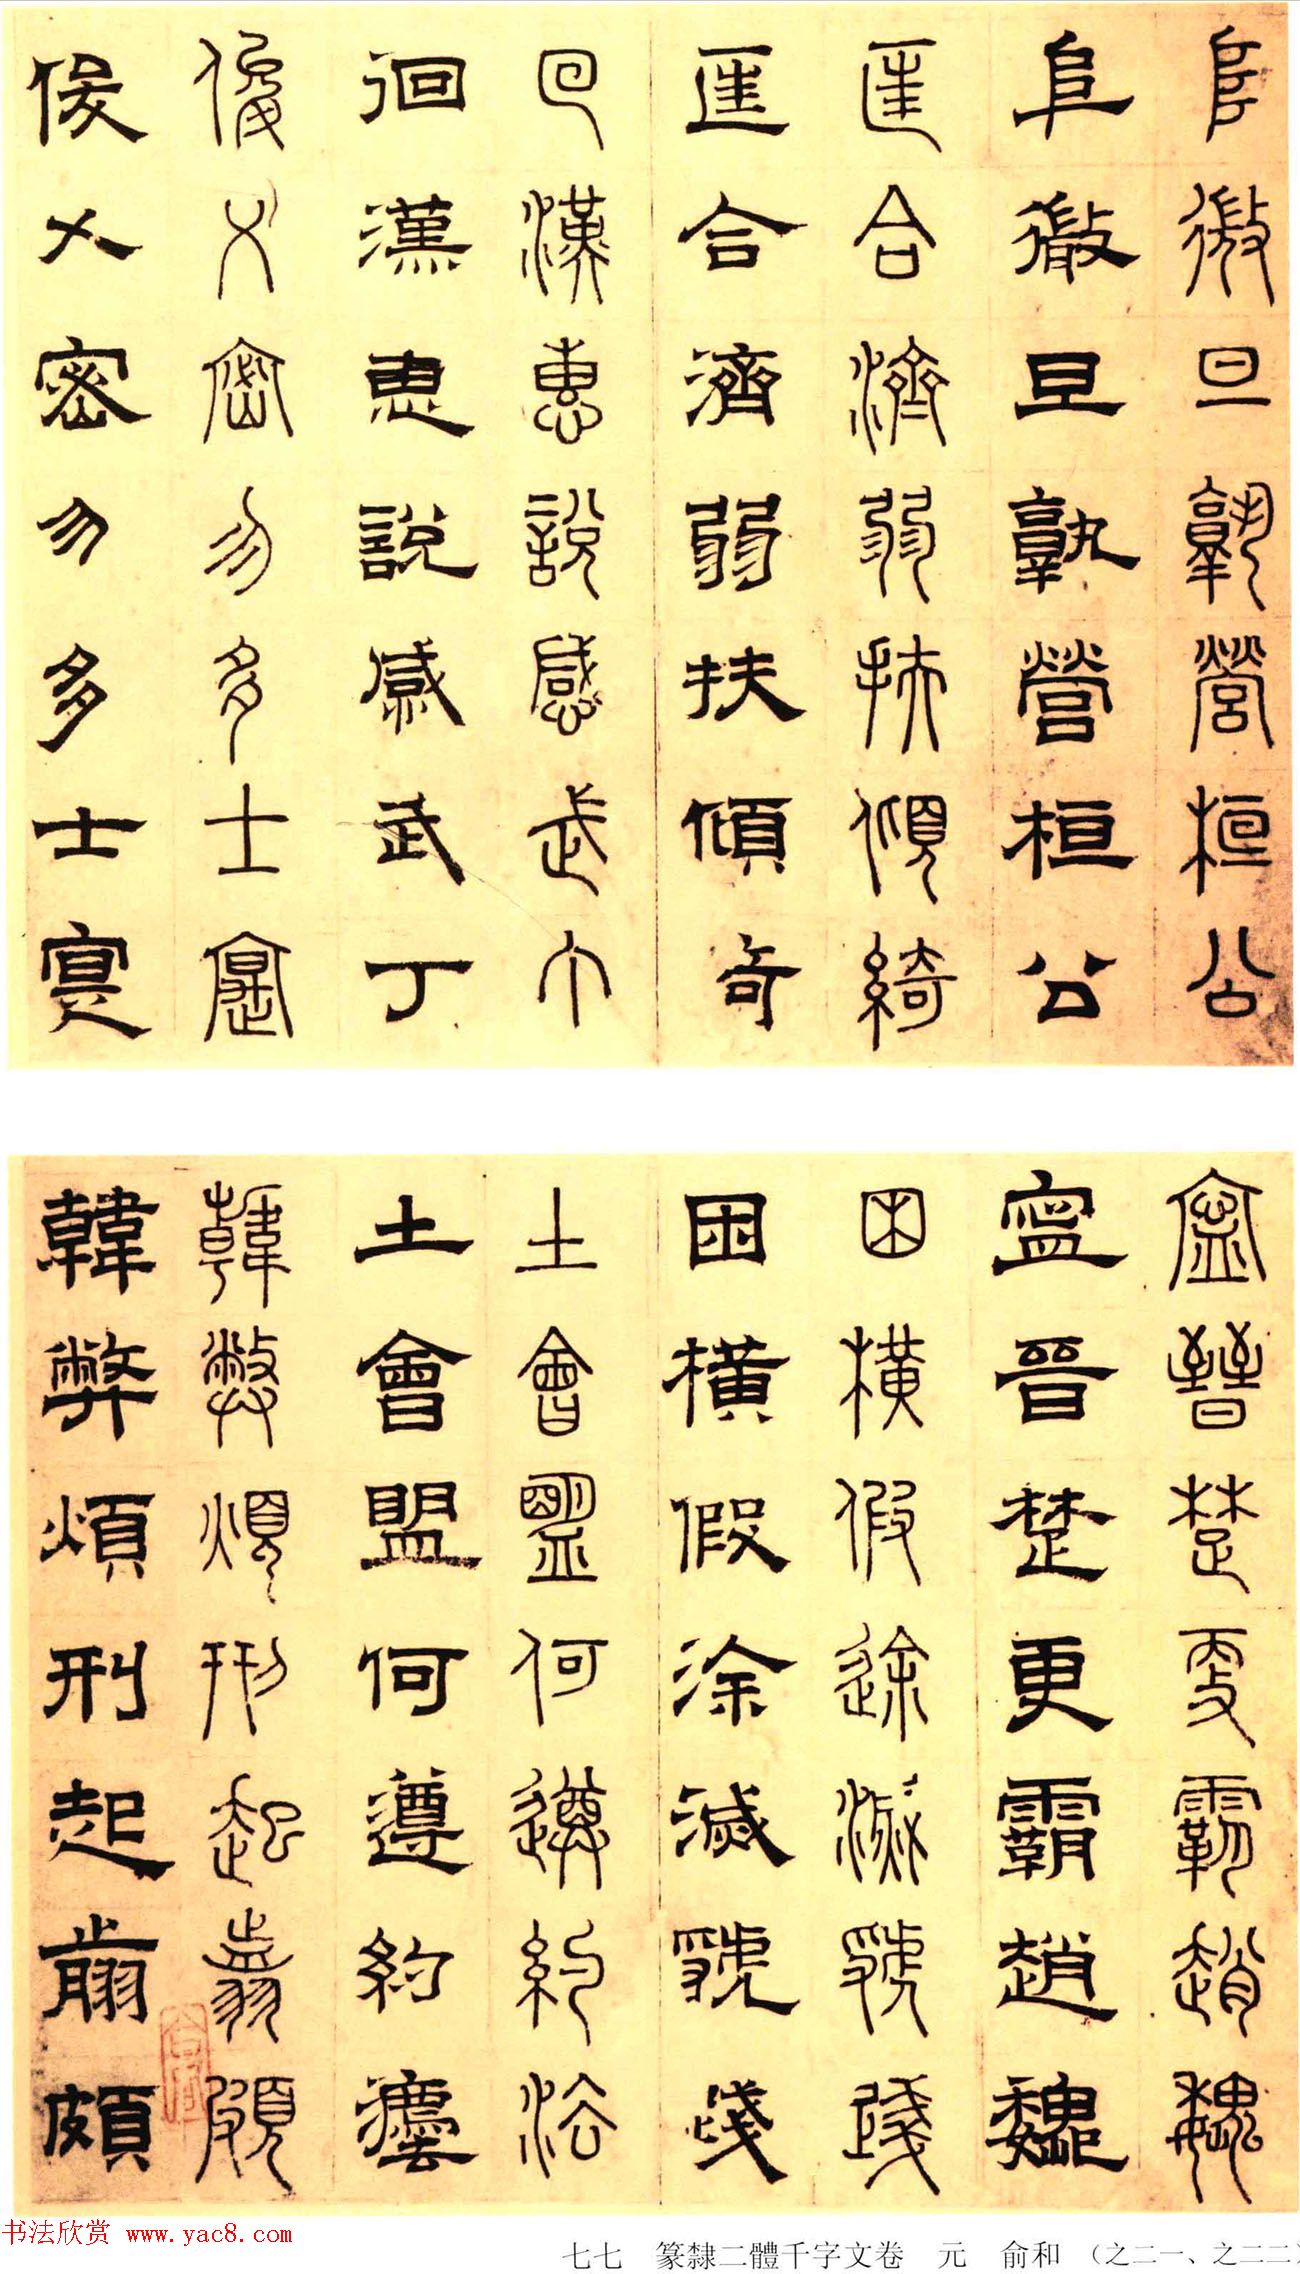 阜徽旦孰營桓公
阜徽旦孰營桓公
匡合濟弱扶傾綺
匡合濟弱扶傾奇
回漢惠說感武丁
徊漢恵說感武丁
俊乂密勿多士寔
俊乂密勿多士寔
寧晉楚更霸趙魏
寧晉楚更霸趙魏
困橫假途滅虢踐
困橫假涂滅虢踐
土會盟何遵約法
土會盟何遵約灋
韓弊煩刑起翦頗
韓弊煩刑起翦頗
书法欣赏 www.yac8.com
七七 篆隸二體千字文卷 元 俞和 （之二一、之二二）